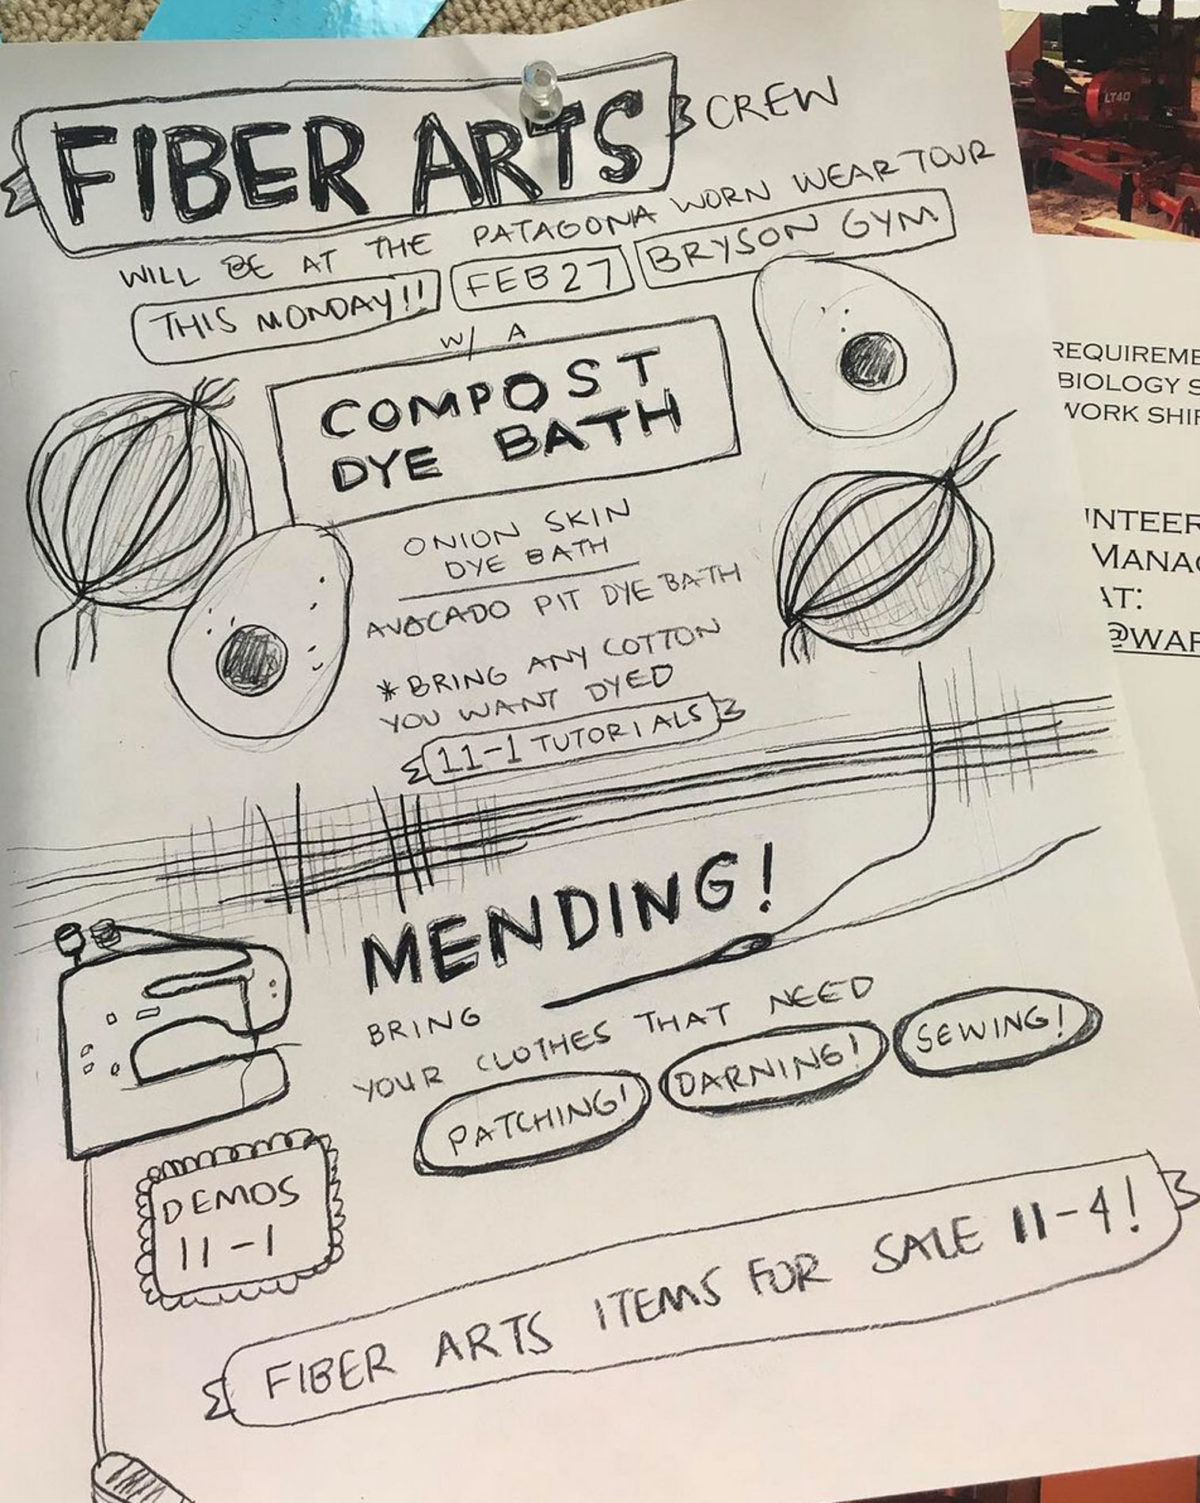 FIBER ARTS CREW
WILL BE AT THE PATAGONA WORN WEAR TOUR
THIS MONDAY!! FEB 27 BRYSON GYM
W/ A
COMPOST
DYE BATH
ONION SKIN
DYE BATH
AVOCADO PIT DYE BATH
*BRING ANY COTTON
YOU WANT DYED
11-1 TUTORIALS
MENDING!
BRING
YOUR CLOTHES THAT NEED
PATCHING! DARNING! SEWING!
DEMOS
11-1
FIBER ARTS ITEMS FOR SALE 11-4!
LT40
REQUIREME
BIOLOGY S
WORK SHIF
INTEER
MANAG
AT:
@WAR